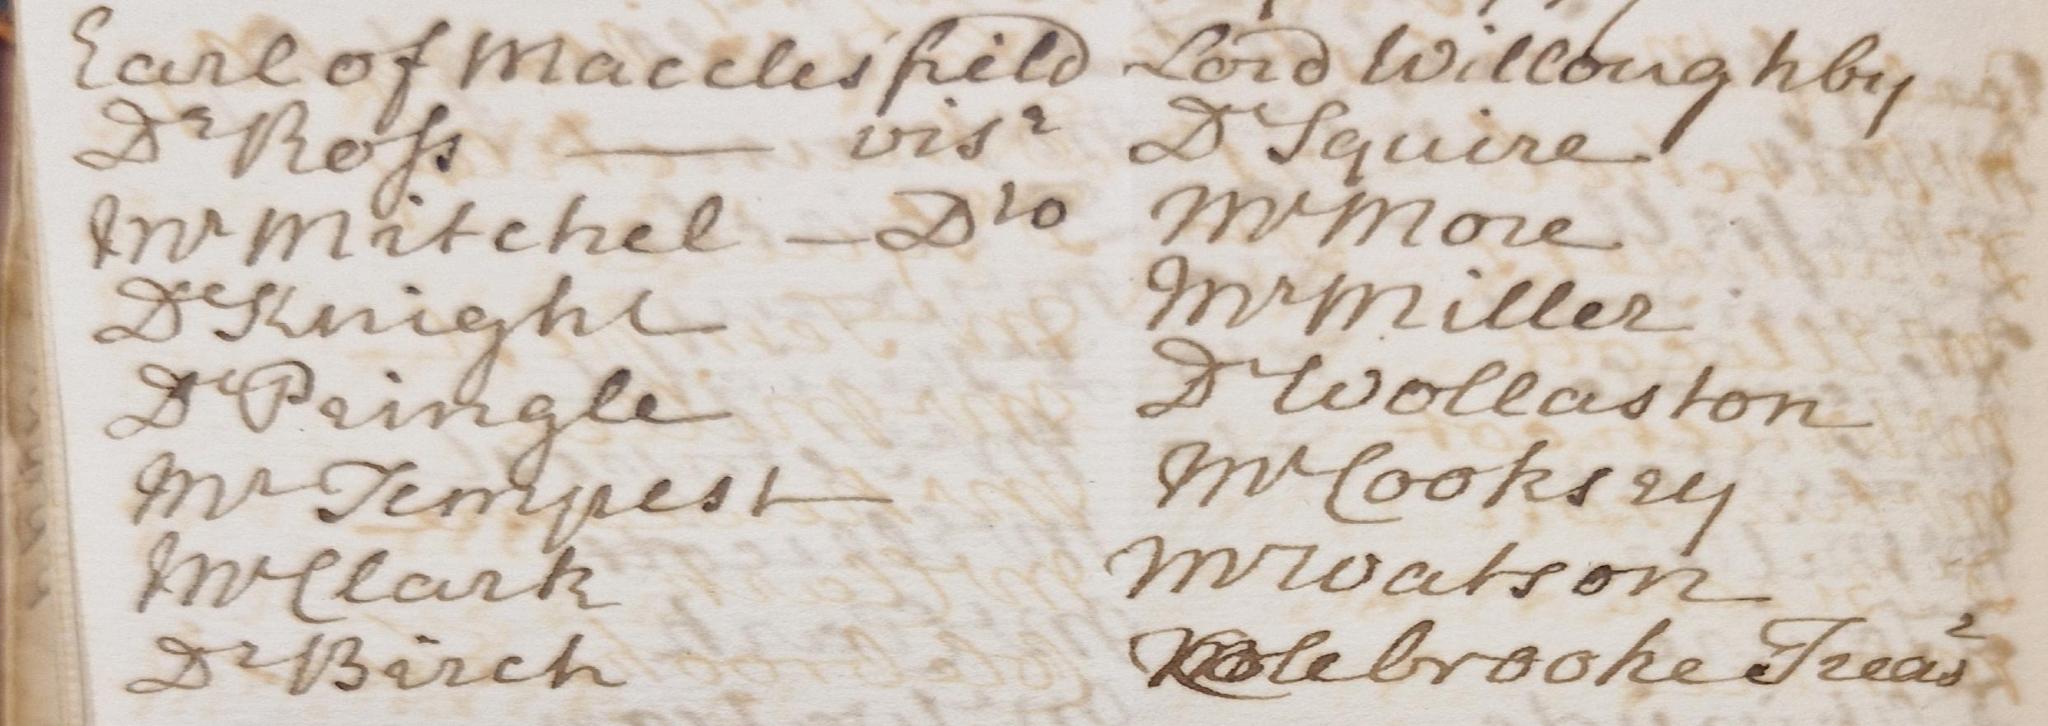 Earl of Macclesfield
Dr Ross — visr
Mr Mitchel — Dto
Dr Knight
Dr Pringle
Mr Tempest
Mr Clark
Dr Birch
Lord Willoughby
Dr Squire
Mr More
Mr Miller
Dr Wollaston
Mr Cooksey
Mr Watson
Colebrooke Treasr